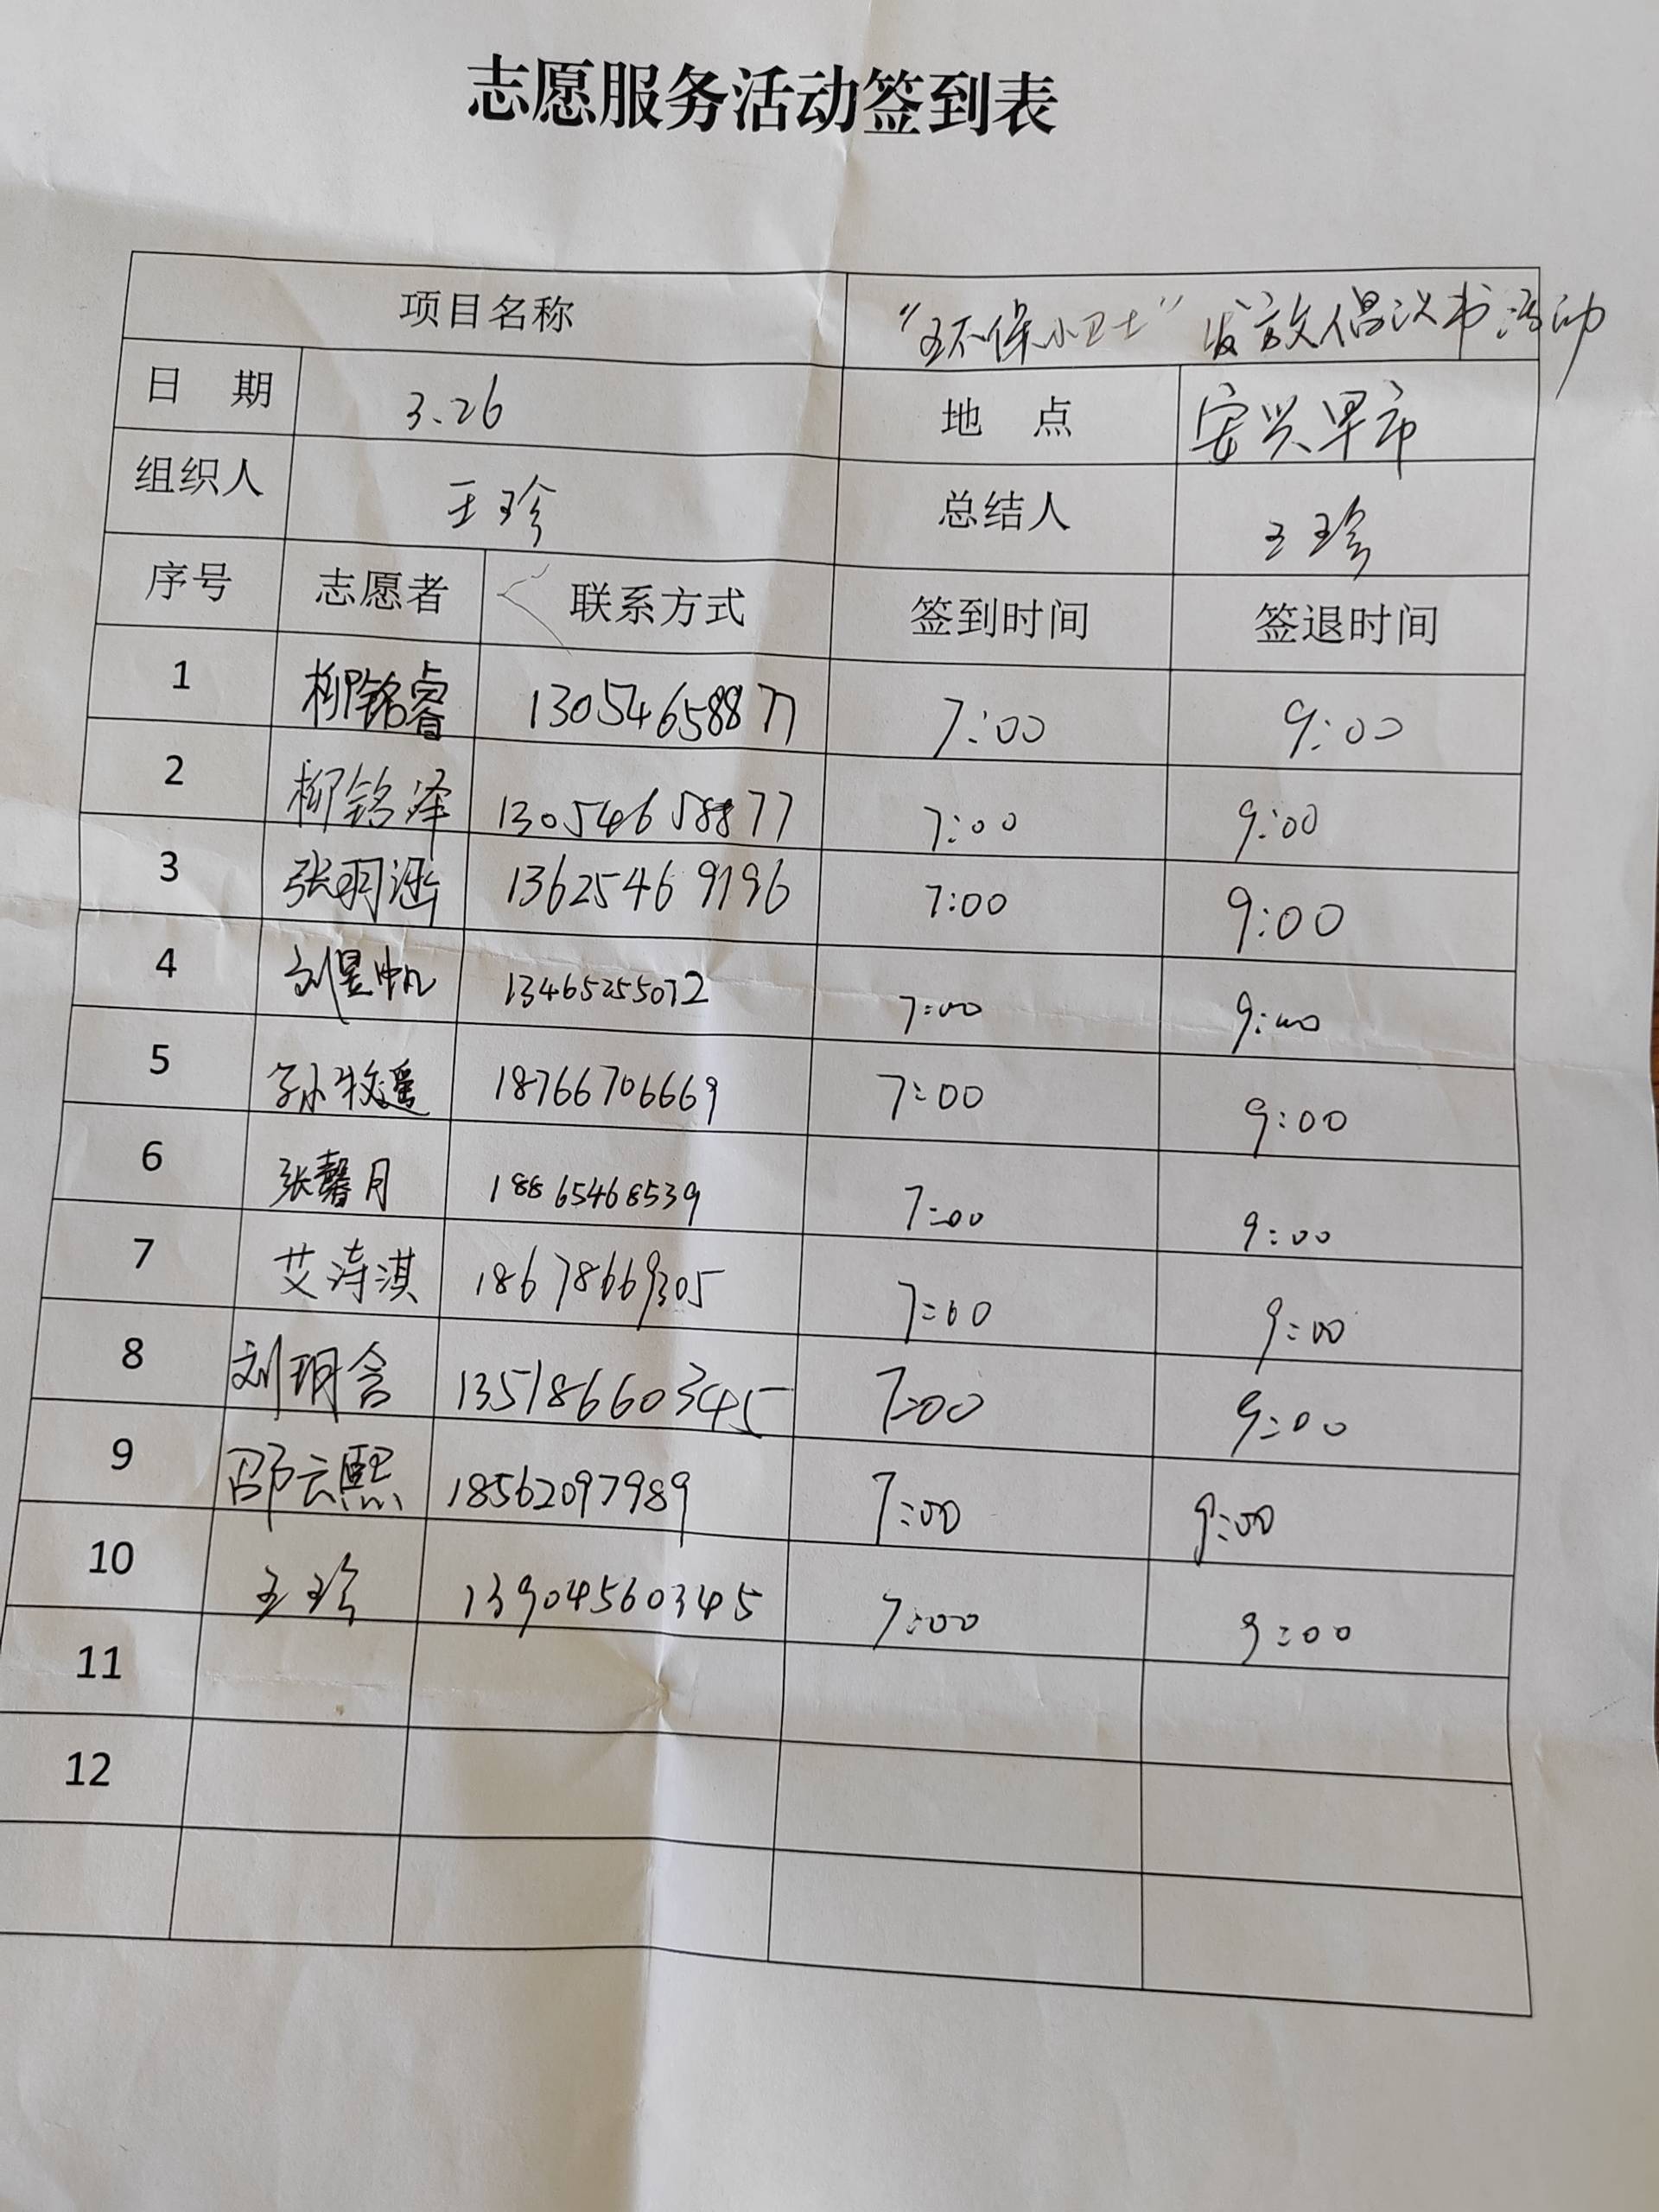 志愿服务活动签到表
项目名称 “环保小卫士”发放倡议书活动
日 期 3.26 地 点 安兴早市
组织人 王珍 总结人 王珍
序号 志愿者 联系方式 签到时间 签退时间
1 柳铭睿 13054658877 7:00 9:00
2 柳铭泽 13054658877 7:00 9:00
3 张玥涵 13625469196 7:00 9:00
4 刘昱帆 13465255072 7:00 9:00
5 孙牧遥 18766706669 7:00 9:00
6 张馨月 18865468539 7:00 9:00
7 艾涛淇 18678669305 7:00 9:00
8 刘玥含 13518660345 7:00 9:00
9 邵云熙 18562097989 7:00 9:00
10 王珍 13904560345 7:00 9:00
11
12